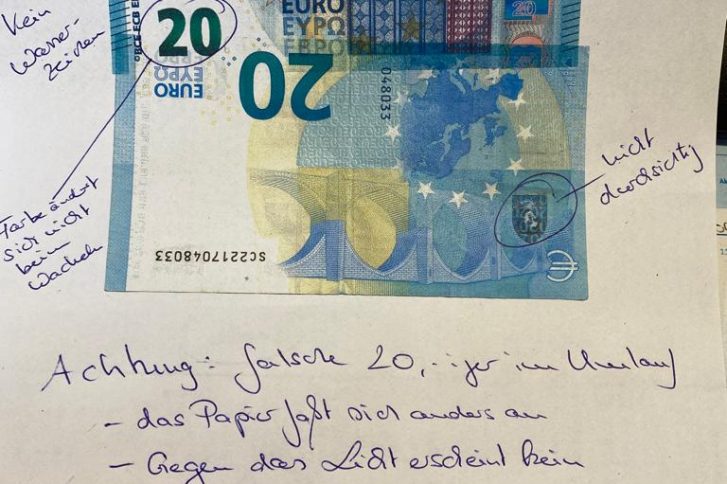 Kein
Wasser-
zeichen
20
EURO
ΕΥΡΩ
ЕВРО
20
20
EURO
ΕΥΡΩ
048033
nicht
durchsichtig
Farbe ändert
sich nicht
beim
Wackeln
SC2217048033
€
Achtung: falsche 20,-iger im Umlauf
- das Papier faßt sich anders an
- Gegen das Licht erscheint kein